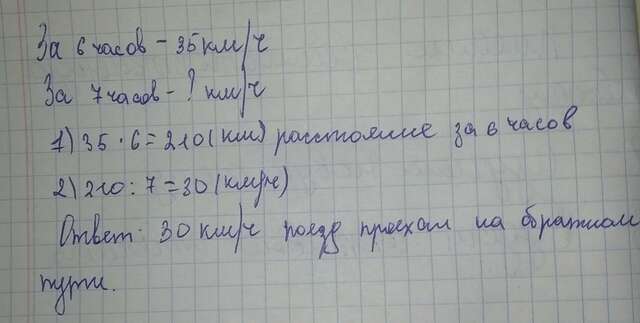 За 6 часов - 35 км/ч
За 7 часов - ? км/ч
1) 35 · 6 = 210 (км) расстояние за 6 часов
2) 210 : 7 = 30 (км/ч)
Ответ: 30 км/ч поезд проехал на обратном
пути.